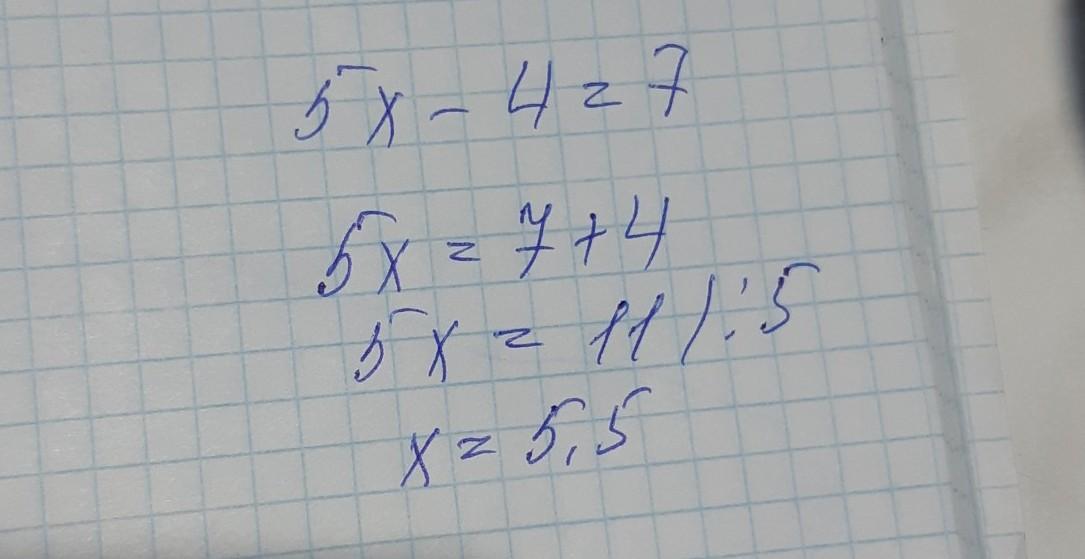 5x - 4 = 7
5x = 7 + 4
5x = 11 / : 5
x = 5,5